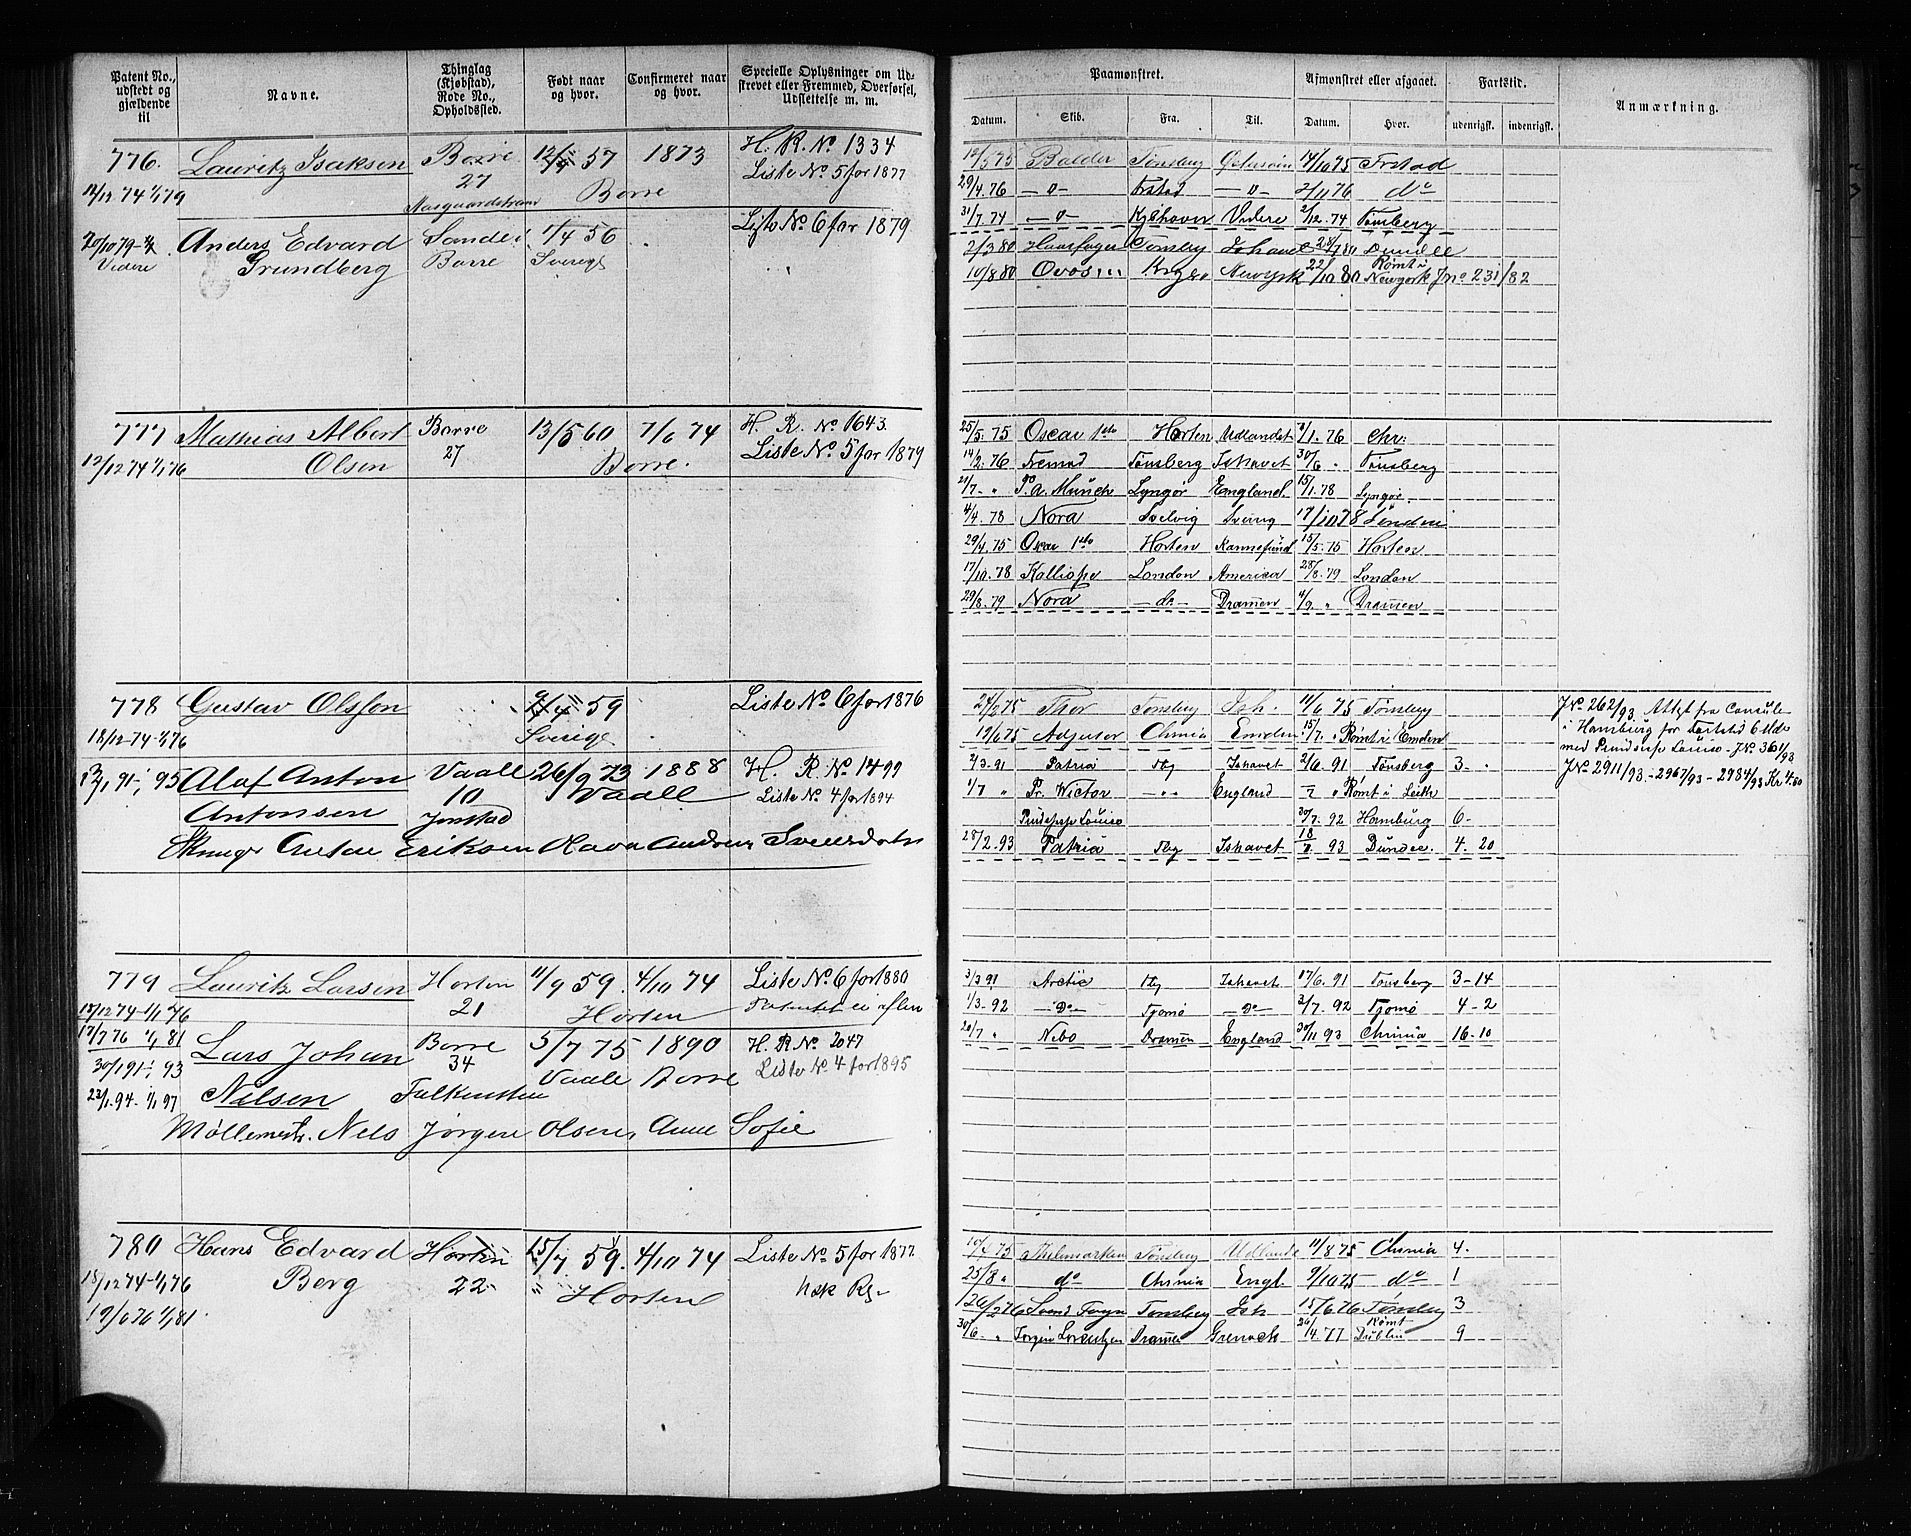 Patent No., udstedt og gjældende til
Navne.
Thinglag (Kjøbstad), Rode No., Opholdssted.
Født naar og hvor.
Confirmeret naar og hvor.
Specielle Oplysninger om Udskrevet eller Fremmed, Overførsel, Udslettelse m. m.
Paamønstret.
Afmønstret eller afgaaet.
Fartstid.
Anmærkning.
Datum. Skib. Fra. Til. Datum. Hvor. udenrigsk. indenrigsk.
776. Lauritz Isaksen Borre 57 1873 H. R. No 1334
27 Borre Liste No 5 for 1877
12/12 74 1/1 79
Anders Edvard Sande i 1/4 56 Liste No 6 for 1879
Videre Grundberg Borre Sverige
12/5 75 Balder Tønsberg 14/10 75 Frstad
29/4. 76 —„— Frstad —„— 2/11 76 do
31/7. 74 —„— Kjøhavn Videre 2/12. 74 Tønsberg
2/3 80 Haarfager Tønsberg Ishavet Dundee
10/8 80 Newyork 22/10 80 Rømt i Newyork Jno 231/82
777 Mathias Albert Borre 13/5 60 7/6 74 H. R. No 1643
12/12 74 1/1 76 Olsen 27 Borre. Liste No 5 for 1879
25/5. 75 Oscar 1ste Horten Udlandet 3/1. 76 Chr:
14/2. 76 Fremad Tønsberg Ishavet 30/6 „ Tønsberg
21/7. „ P. A. Munch Lyngør England. 15/1. 78 Lyngør.
4/4. 78 Nora Svelvig 17/10 78 London
29/4. 75 Oscar 1ste Horten 15/5. 75 Horten
17/10. 78 Kalliope London America 28/8. 79 London
29/8. 79 Nora —do— Dramen 4/9. „ Dramen
778 Gustav Olsson 59 Liste No 6 for 1876
18/12 74 1/1 76 Sverige
91 95 Olaf Anton Vaale 26/9 73 1888 H. R. No 1499
Antonsen 10 Vaale Liste No 4 for 1894
Jonstad
Anton Eriksen Rava
24/2 75 Thor Tønsberg Ish. 11/6 75 Tønsberg
19/6 75 Adjutor Chnia Emden 15/7. „ Rømt i Emden
2/3. 91 Patria Tbg Ishavet 2/6. 91 Tønsberg 3. „
1/7 „ Pr. Victor —„— England „ Rømt i Leith
30/7. 92 Hamburg 6 -
28/2. 93 Patria Tbg Ishavet 18/7 93 Dundee. 4. 20
JNo 262/93. Attest fra Consulen
i Hamburg for Fartstid 6 Mdr
med Louise - JNo 361/93
JNo 2911/93 - 2967/93 - 2984/93 Kr. 4.60
779 Lauritz Larsen Horten 11/9 59. 4/10 74 Liste No 6 for 1880
17/12 74 1/1 76 21 Horten Patentet ei aflev
17/7 76 1/1 81 Lars Johan Borre 5/7 75 1890 H. R. No 2047
93 34 Vaale Borre Liste No 4 for 1895
94 1/1 97 Nilsen Falkensten
Møllemestr. Nels Jørgen Olsen, Anne Sofie
3/3 91 Arctic Tbg Ishavet 17/6. 91 Tønsberg 3-14
1/3. 92 —Do— Tjømø —Do— 3/7. 92 Tjømø 4-2
20/7 „ Nebo Dramen England 30/11 93 Chrnia 16.10
780 Hans Edvard Horten 59. 4/10 74 Liste No 5 for 1877
18/12 74 1/1 76 Berg 22 Horten
19/6 76 1/1 81.
Thelemarken Tønsberg Udlandet 11/8 75 Chrnia 4.
25/8 „ do Chrnia Engl 9/10 75 do 1
26/2 76 Svend Foyn Tønsberg Ish 15/6 76 Tønsberg 3
30/6 „ Jørgen Lorentzen Dramen Grenock 26/4. 77 Rømt Dublin 9